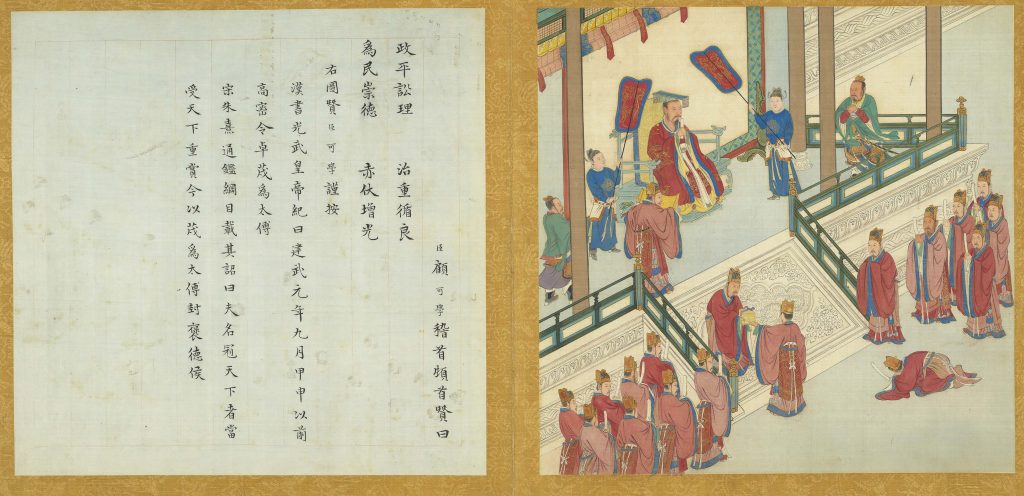 臣顧可學稽首頓首贊曰
政平訟理 治重循良
為民崇德 赤伏增光
右圖贊臣可學謹按
漢書光武皇帝紀曰建武元年九月甲申以前
高密令卓茂為太傅
宋朱熹通鑑綱目載其詔曰夫名冠天下者當
受天下重賞今以茂為太傅封襃德侯